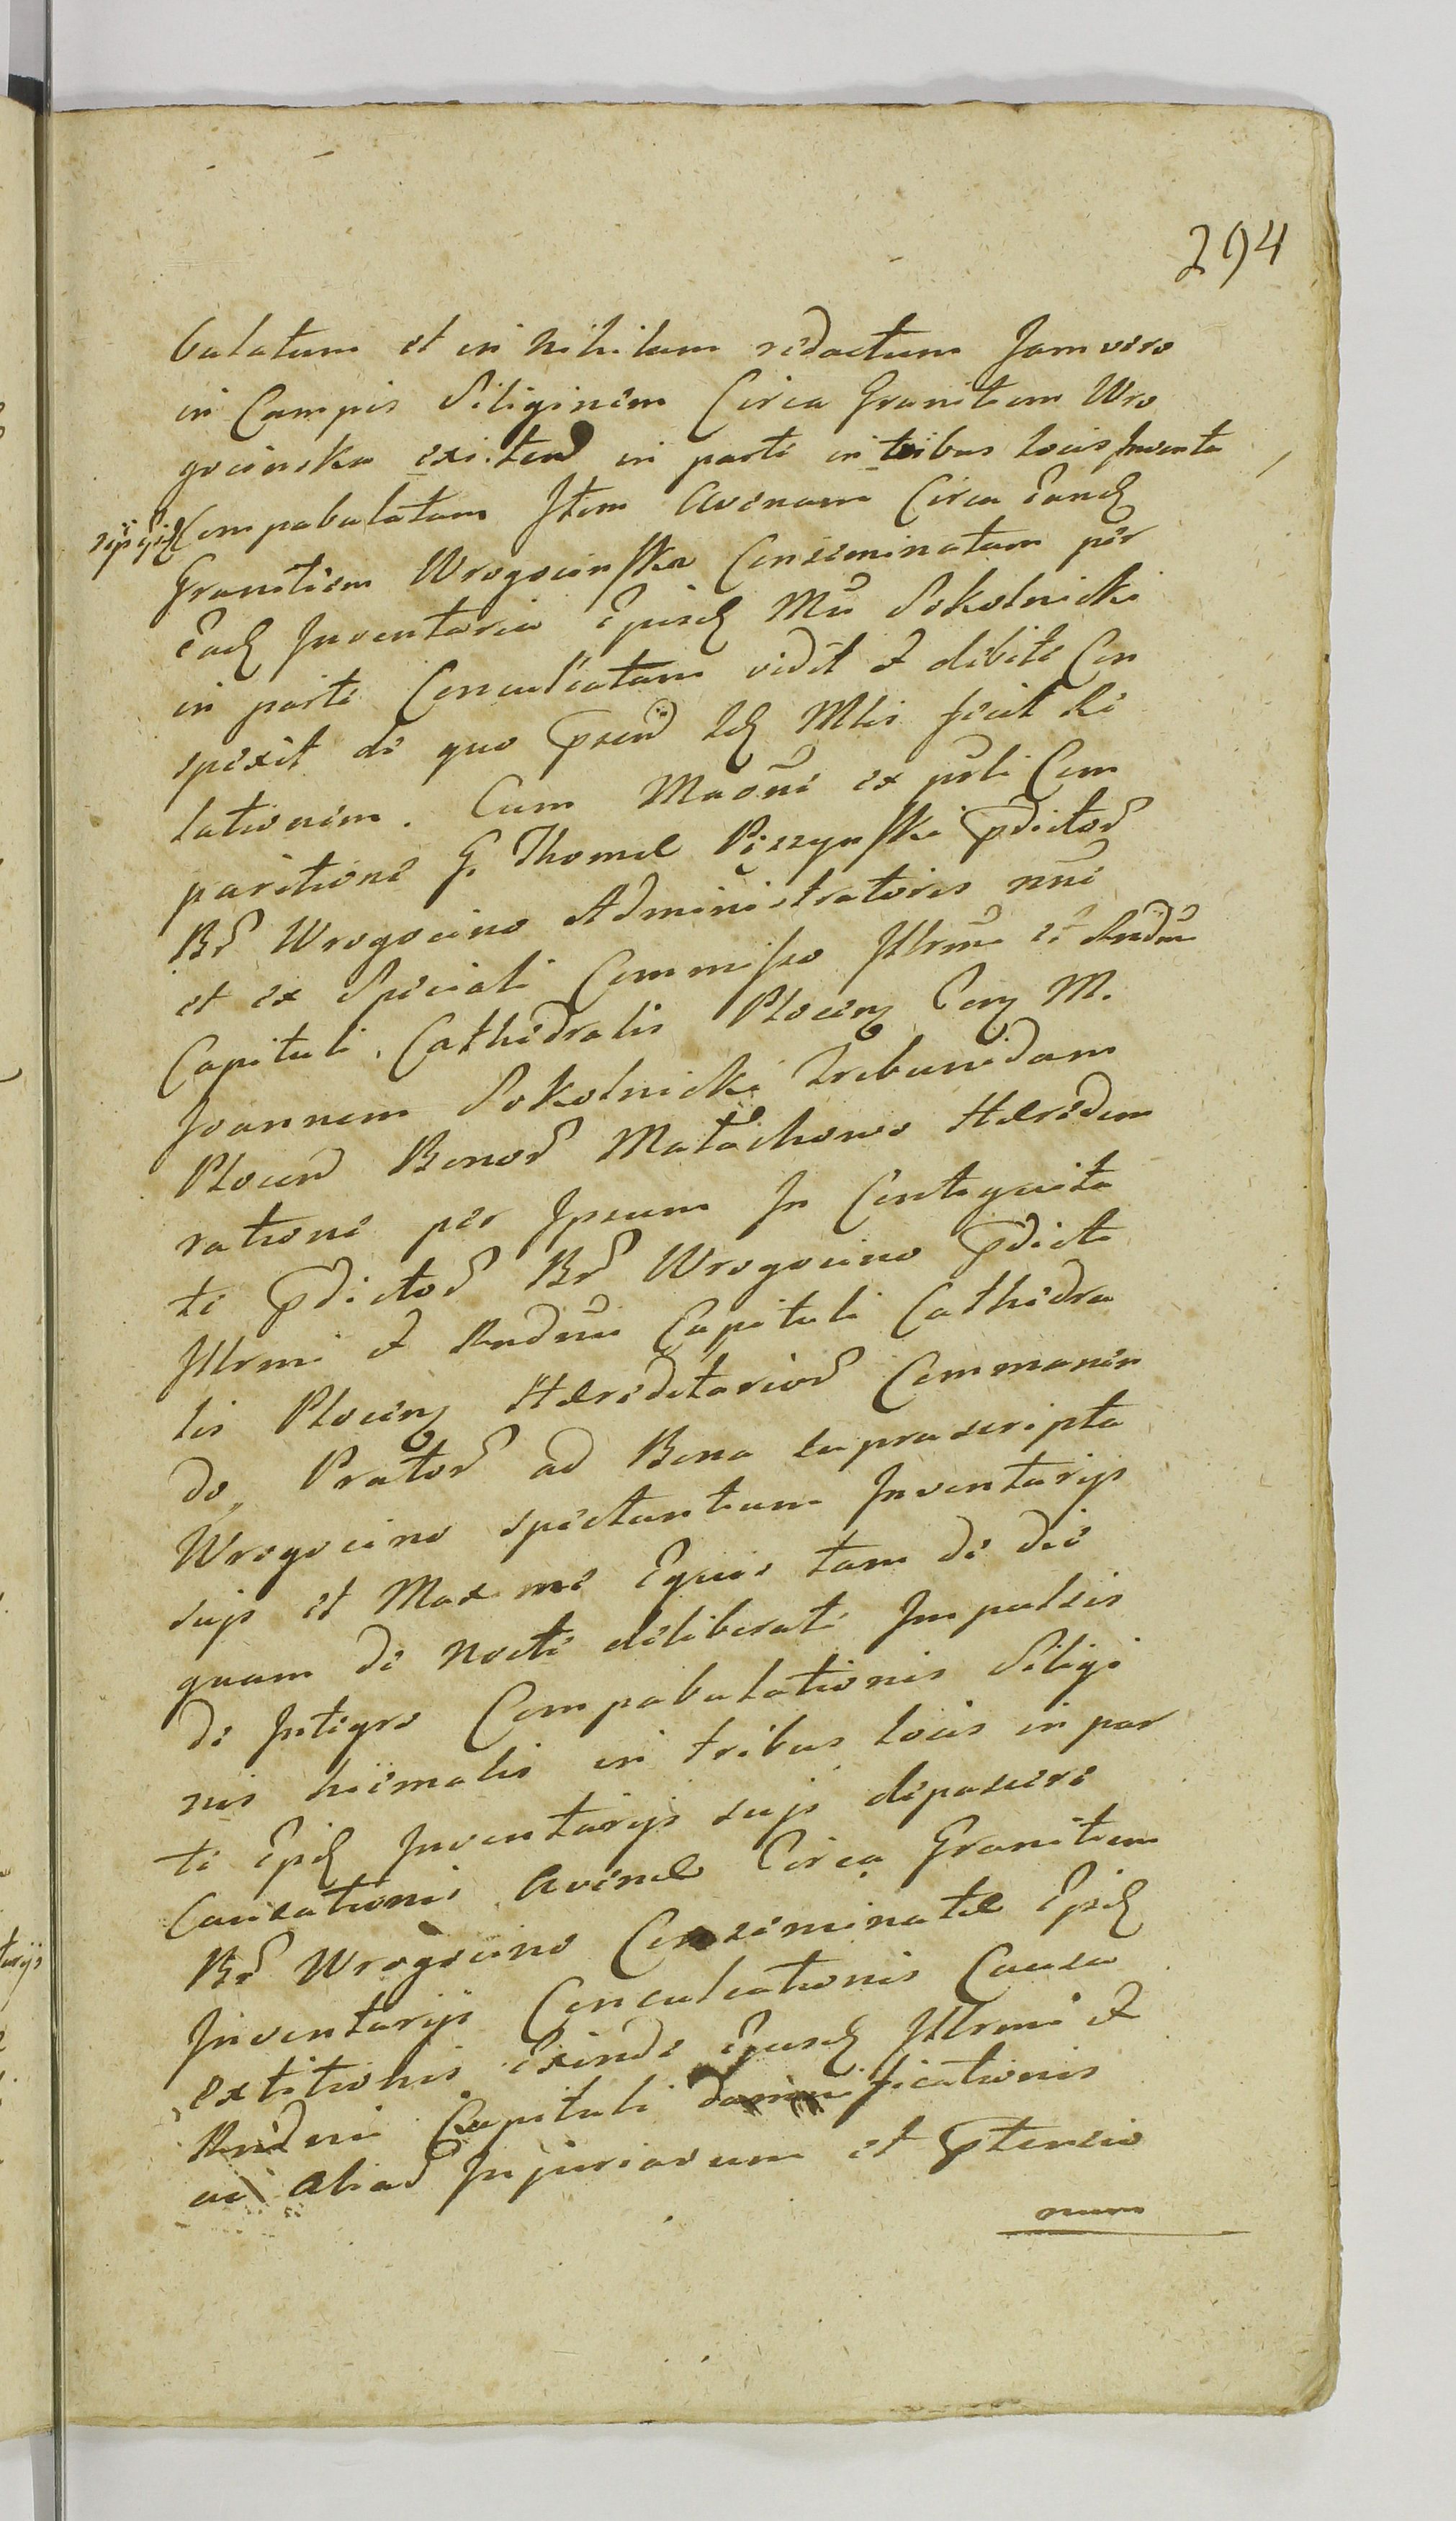 294
bulatum et in Nihilum redactum Jam vero
in Campis Siliginem Circa Granitiem Wro
gocinska existend in parte in tribus locis Inventa
rijs
Compabulatam Item Avenam Circa Eand
Granitiem Wrogocinska Conseminatam per
Ead Inventaria Ejusd Mci Sokolnicki
in parte Conculcatam vidit et debite Con
spexit de quo fecit Re
lationem. Cum ex Com
paritione G. Thomæ Pdictor
Br Wrogocino Administratoris nni
et ex Speciali Commisso Illrmi et Rndmi
Capituli Cathedralis Plocen M.
Joannem Sokolnicki Tribunidam
Plocen Bonor Małachowo Hæredem
ratione per Ipsum In Contiguita
te Pdictor Br Wrogocino Pdicti
Illrmi et Rndmi Capituli Cathedra
lis Plocen Hæreditarior Commanen
do, Prator ad Bona supra scripta
Wrogocino spectantium Inventarijs
sujs et Maxime Equis tam de die
quam de Nocte deliberate Impulsis
de Integro Compabulationis Siligi
nis hiemalis in tribus locis in par
te Epd Inventarijs sujs depascere
Causationis Avenæ Circa Granitiem
Br Wrogocino Conseminatæ Ejsd
Inventarijs Conculcationis Causa
extitionis Exinde Ejusd Illrmi et
Rndmi Capituli damnificationis
ac aliar Injuriarum et Ptensio
num